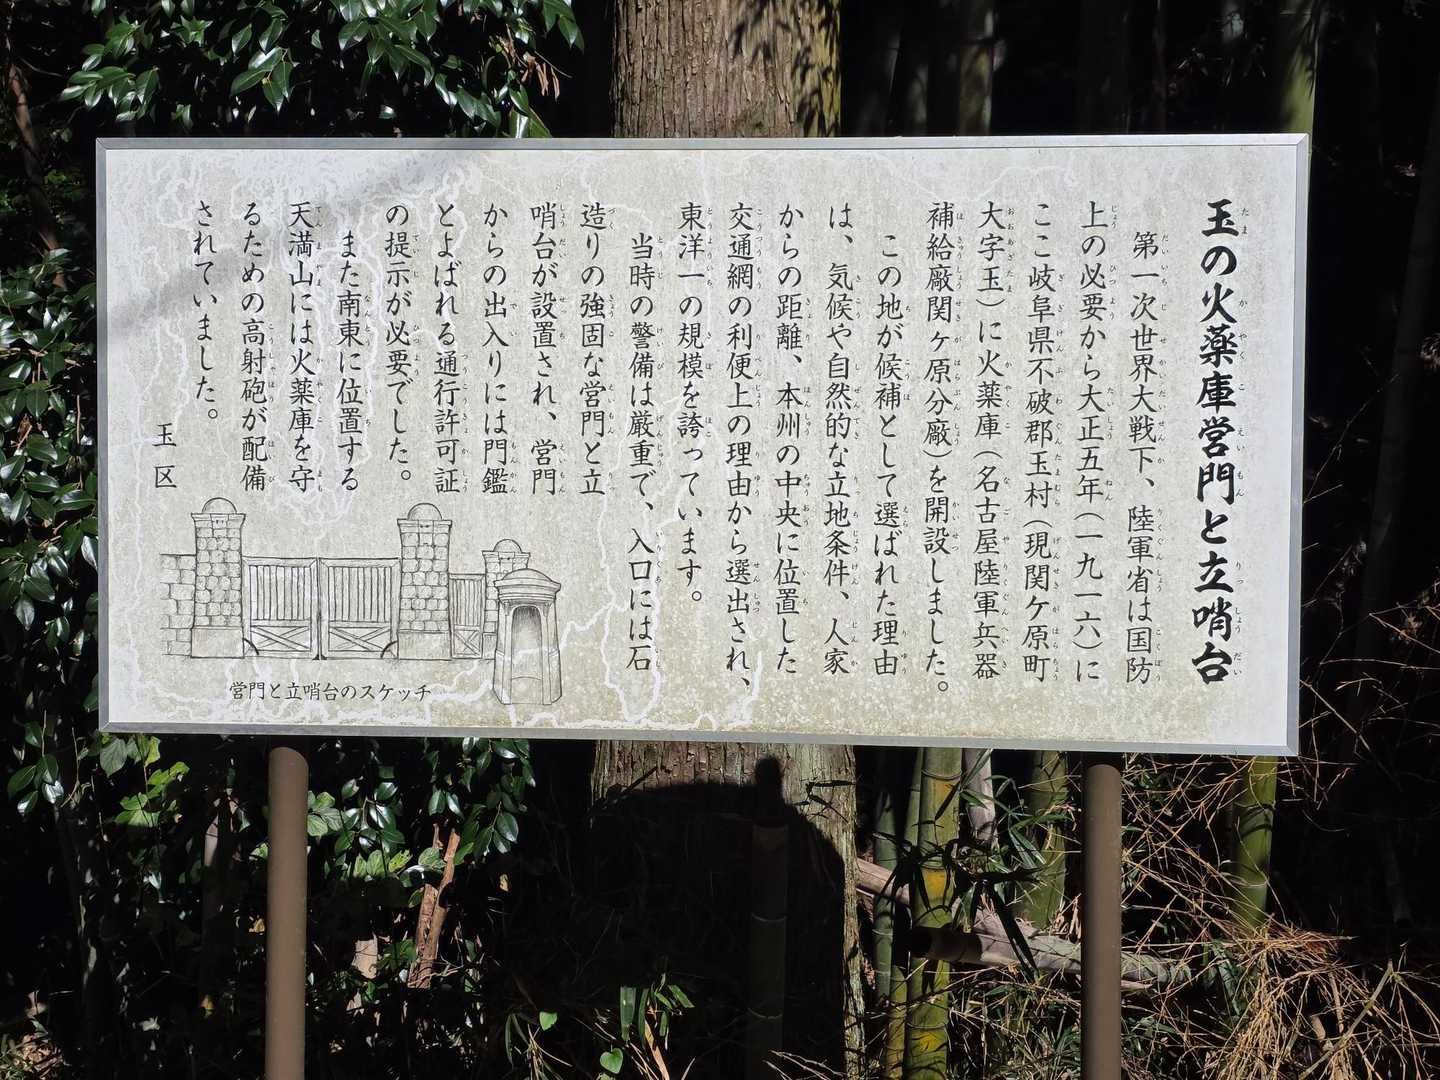 玉の火薬庫営門と立哨台
第一次世界大戦下、陸軍省は国防
上の必要から大正五年(一九一六)に
ここ岐阜県不破郡玉村(現関ケ原町
大字玉)に火薬庫(名古屋陸軍兵器
補給廠関ヶ原分廠)を開設しました。
この地が候補として選ばれた理由
は、気候や自然的な立地条件、人家
からの距離、本州の中央に位置した
交通網の利便上の理由から選出され、
東洋一の規模を誇っています。
当時の警備は厳重で、入口には石
造りの強固な営門と立
哨台が設置され、営門
からの出入りには門鑑
とよばれる通行許可証
の提示が必要でした。
また南東に位置する
天満山には火薬庫を守
るための高射砲が配備
されていました。
玉区
営門と立哨台のスケッチ